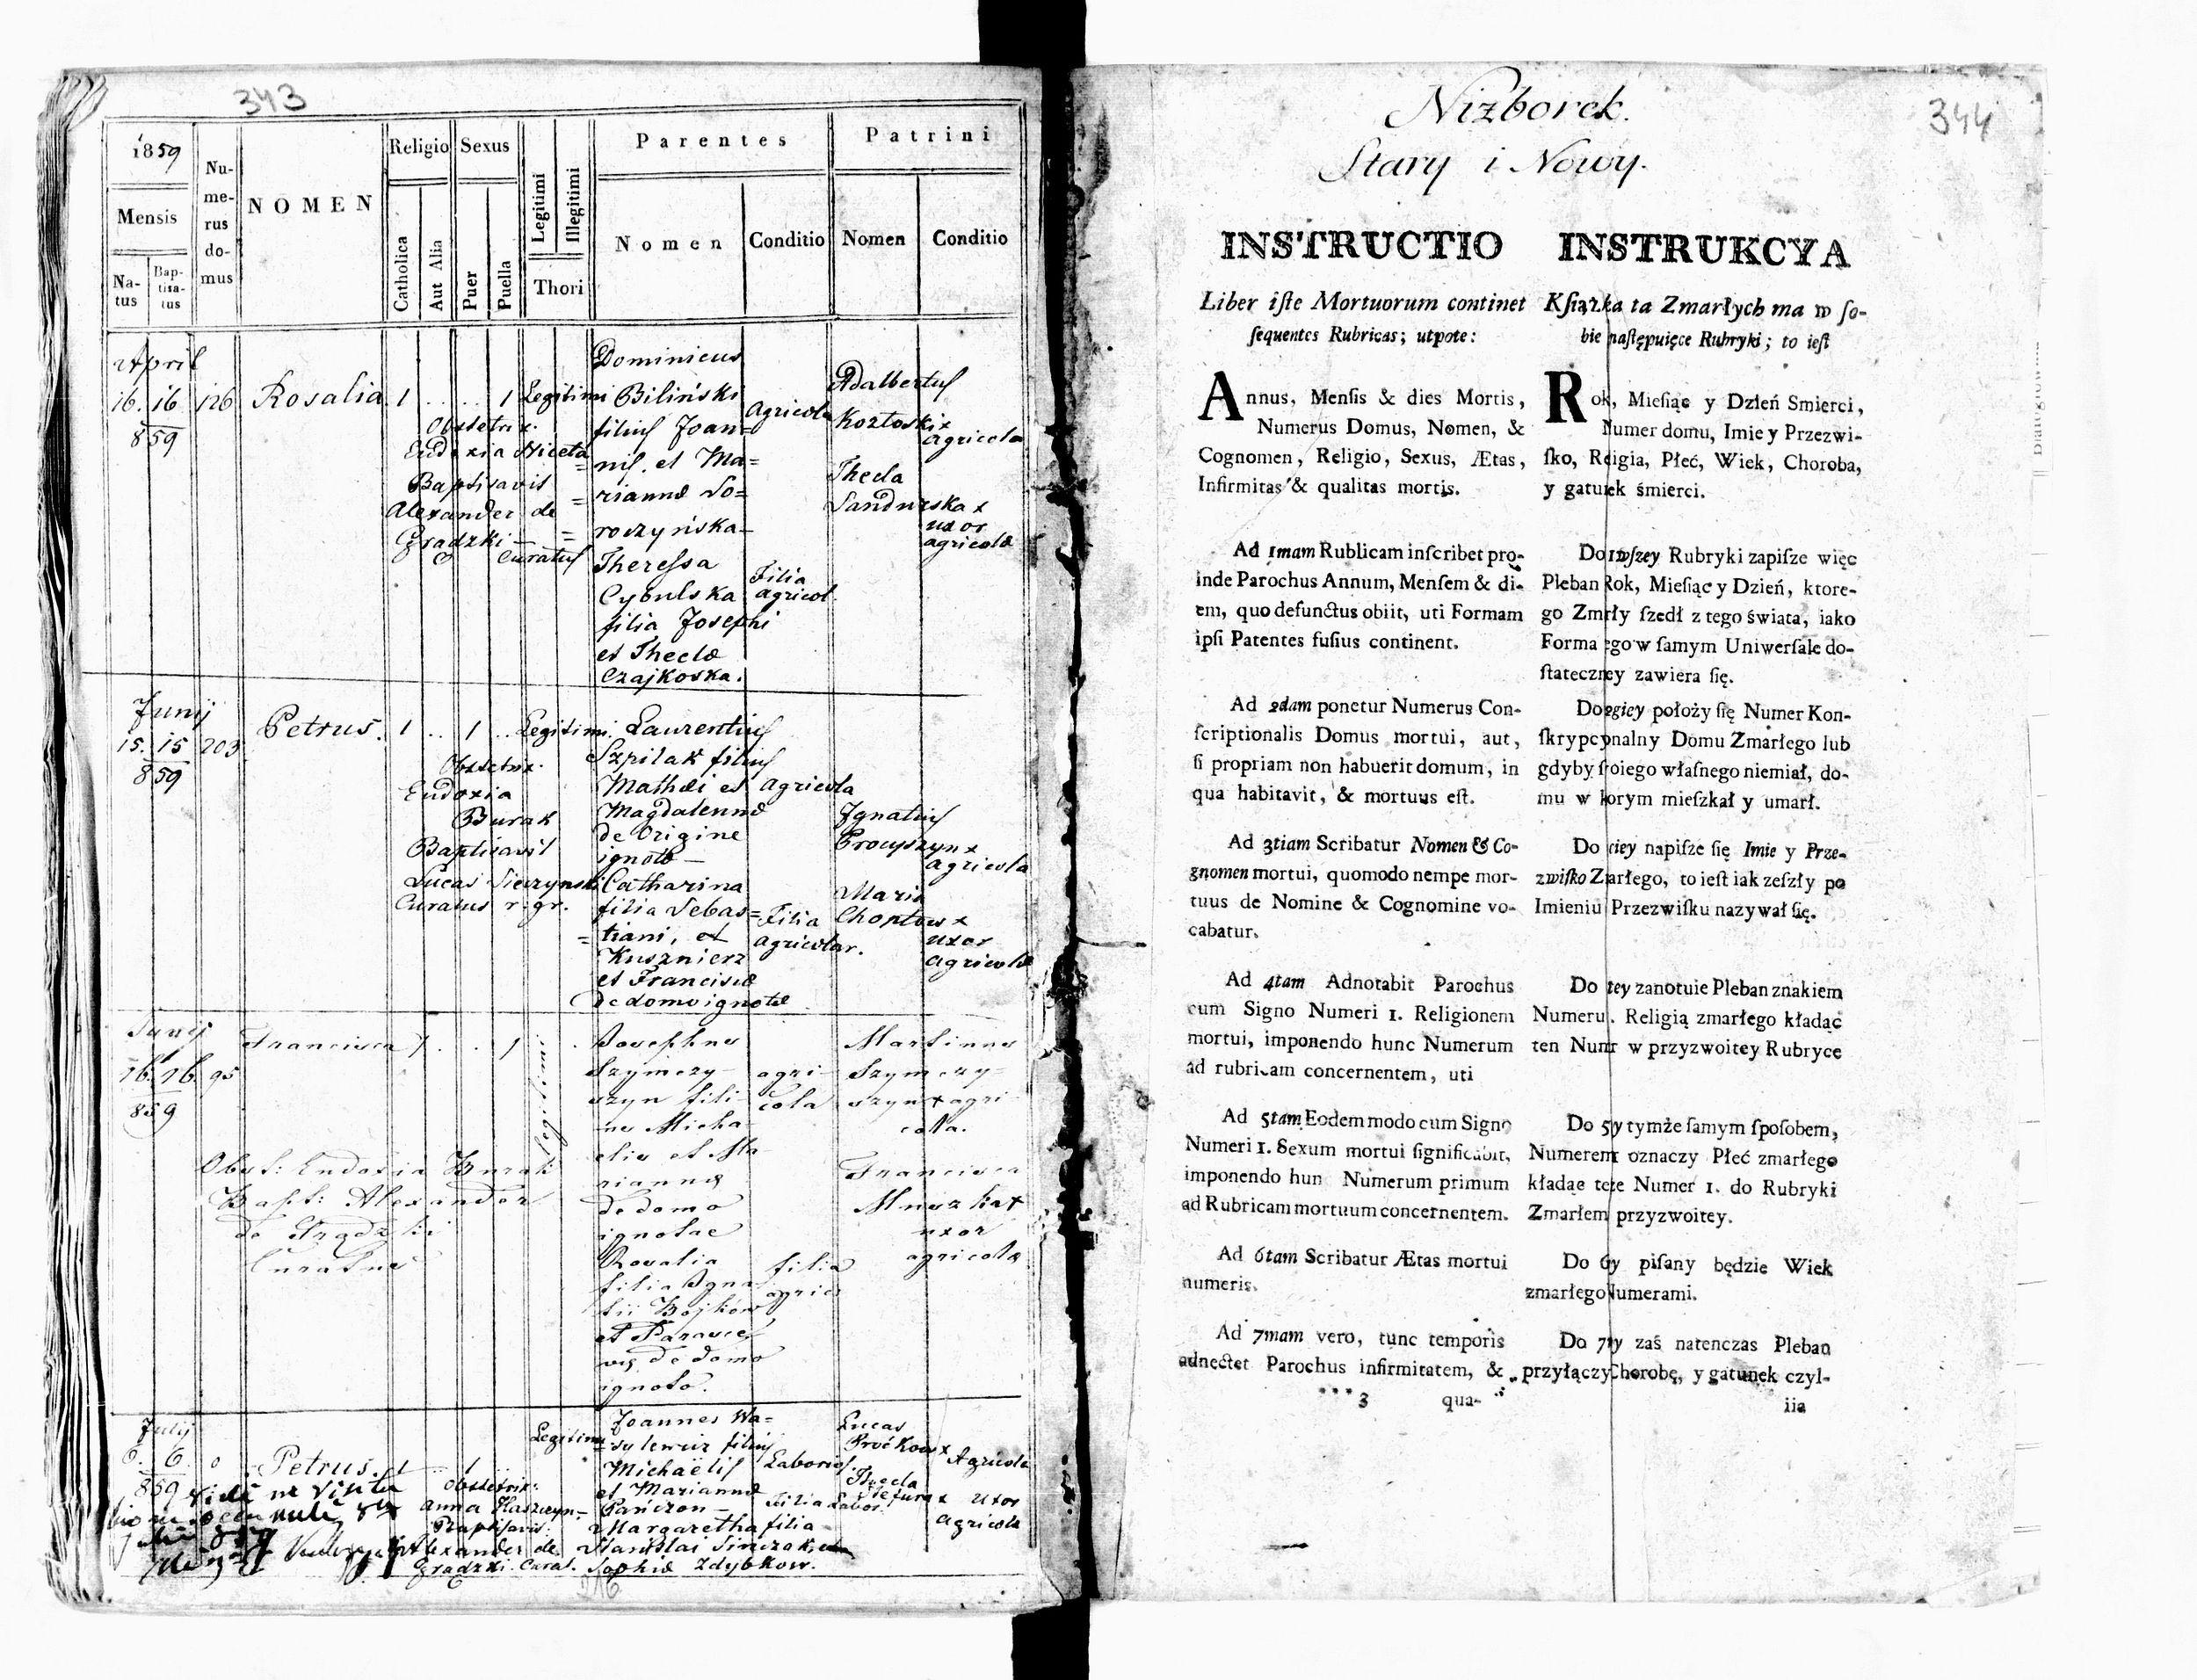 343
1859
Mensis
Na-
tus
Bap-
tisa-
tus
Nu-
me-
rus
do-
mus
NOMEN
Religio
Catholica
Aut Alia
Sexus
Puer
Puella
Legitimi
Illegitimi
Thori
Parentes
Nomen
Conditio
Patrini
Nomen
Conditio
April
16. 16 126 Rosalia 1 .. .. 1 Legitimi
859
Obstetrix.
Eudoxia Niceta
Baptisavit
Alexander de
Gradzki
Curatus
Dominicus
Biliński
filius Joan=
nis. et Ma=
riannæ So=
roczyńska
Theressa
Cybulska
filia Josephi
et Theclæ
Czajkoska.
Agricola
Filia
agricol.
Adalbertus
Kozłoski x
agricola
Thecla
Sandurska x
uxor
agricolæ
Junij
15. 15 203 Petrus. 1 .. 1 .. Legitimi
859
Obstetrix.
Eudoxia
Burak
Baptisavit
Lucas Sieczynski
Curatus r. gr.
Laurentius
Szpilak filius
Mathæi et
Magdalennæ
de Origine
ignotæ
Catharina
filia Sebas=
tiani, et
Kusznierz
et Francisæ
de domo ignotæ
agricola
Filia
agricolar.
Ignatius
Procyszyn x
agricola
Maria
Choptow x
uxor
agricolæ
Junij
16. 16. 95 Francisca 1 . . 1 legitimi
859
Obst: Eudoxia Burak
Bapt: Alexander
de Grądzki
Curatus
Josephus
Szymczy-
szyn fili-
us Micha-
elis et Ma-
riannæ
de domo
ignotae
Rosalia
filia Igna-
tii Bojków
et Parasce-
vis de domo
ignoto.
agri-
cola
filia
agric
Martinus
Szymczy-
szyn x agri
cola.
Francisca
x
uxor
agricolæ
July
6. 6. 0 Petrus. 1 .. 1 .. Legitimi
859
Obstetrix:
Anna
Baptisavit:
Alexander de
Gradzki Curat.
Joannes Wa=
sylewicz filius
Michaëlis
et Mariannæ
Pańczon
Margaretha filia
Stanislai Sinczak, et
Sophiæ Zdybkow.
Laborios.
Filia Labor.
Lucas
Proćkow x
Agricola
Thecla
x uxor
agricolæ
344
Niżborek.
Stary i Nowy.
INSTRUCTIO
Liber iſte Mortuorum continet
ſequentes Rubricas; utpote:
Annus, Menſis & dies Mortis,
Numerus Domus, Nomen, &
Cognomen, Religio, Sexus, Ætas,
Infirmitas & qualitas mortis.
Ad 1mam Rublicam inſcribet pro-
inde Parochus Annum, Menſem & di-
em, quo defunctus obiit, uti Formam
ipſi Patentes fuſius continent.
Ad 2dam ponetur Numerus Con-
ſcriptionalis Domus mortui, aut,
ſi propriam non habuerit domum, in
qua habitavit, & mortuus eſt.
Ad 3tiam Scribatur Nomen & Co-
gnomen mortui, quomodo nempe mor-
tuus de Nomine & Cognomine vo-
cabatur.
Ad 4tam Adnotabit Parochus
cum Signo Numeri 1. Religionem
mortui, imponendo hunc Numerum
ad rubricam concernentem, uti
Ad 5tam Eodem modo cum Signo
Numeri 1. Sexum mortui ſignificabit,
imponendo hun Numerum primum
ad Rubricam mortuum concernentem.
Ad 6tam Scribatur Ætas mortui
numeris.
Ad 7mam vero, tunc temporis
adnectet Parochus infirmitatem, &
3 qua-
INSTRUKCYA
Kſiążka ta Zmarłych ma w ſo-
bie naſtępuięce Rubryki; to ieſt
Rok, Mieſiąc y Dzień Smierci,
Numer domu, Imie y Przezwi-
ſko, Religia, Płeć, Wiek, Choroba,
y gatunek śmierci.
Do 1wſzey Rubryki zapiſze więc
Pleban Rok, Mieſiąc y Dzień, ktore-
go Zmrły ſzedł z tego świata, iako
Forma ego w ſamym Uniwerſale do-
ſtateczney zawiera ſię.
Do 2giey położy ſię Numer Kon-
ſkrypcyonalny Domu Zmarłego lub
gdyby ſwoiego własnego niemiał, do-
mu w korym mieſzkał y umarł.
Do ciey napiſze ſię Imie y Prze-
zwiſko Zmarłego, to ieſt iak zeſzły po
Imieniu Przezwiſku nazywał ſię.
Do tey zanotuie Pleban znakiem
Numeru . Religią zmarłego kładąc
ten Numr w przyzwoitey Rubryce
Do 5y tymże ſamym ſpoſobem,
Numerem oznaczy Płeć zmarłego
kładąe teze Numer 1. do Rubryki
Zmarłem przyzwoitey.
Do 6y piſany będzie Wiek
zmarłego Numerami.
Do 7y zaś natenczas Pleban
przyłączy Chorobę, y gatunek czyl-
iia